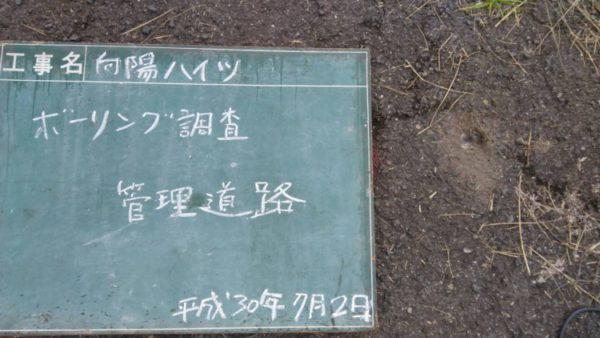 工事名 向陽ハイツ
ボーリング調査
管理道路
平成30年7月2日